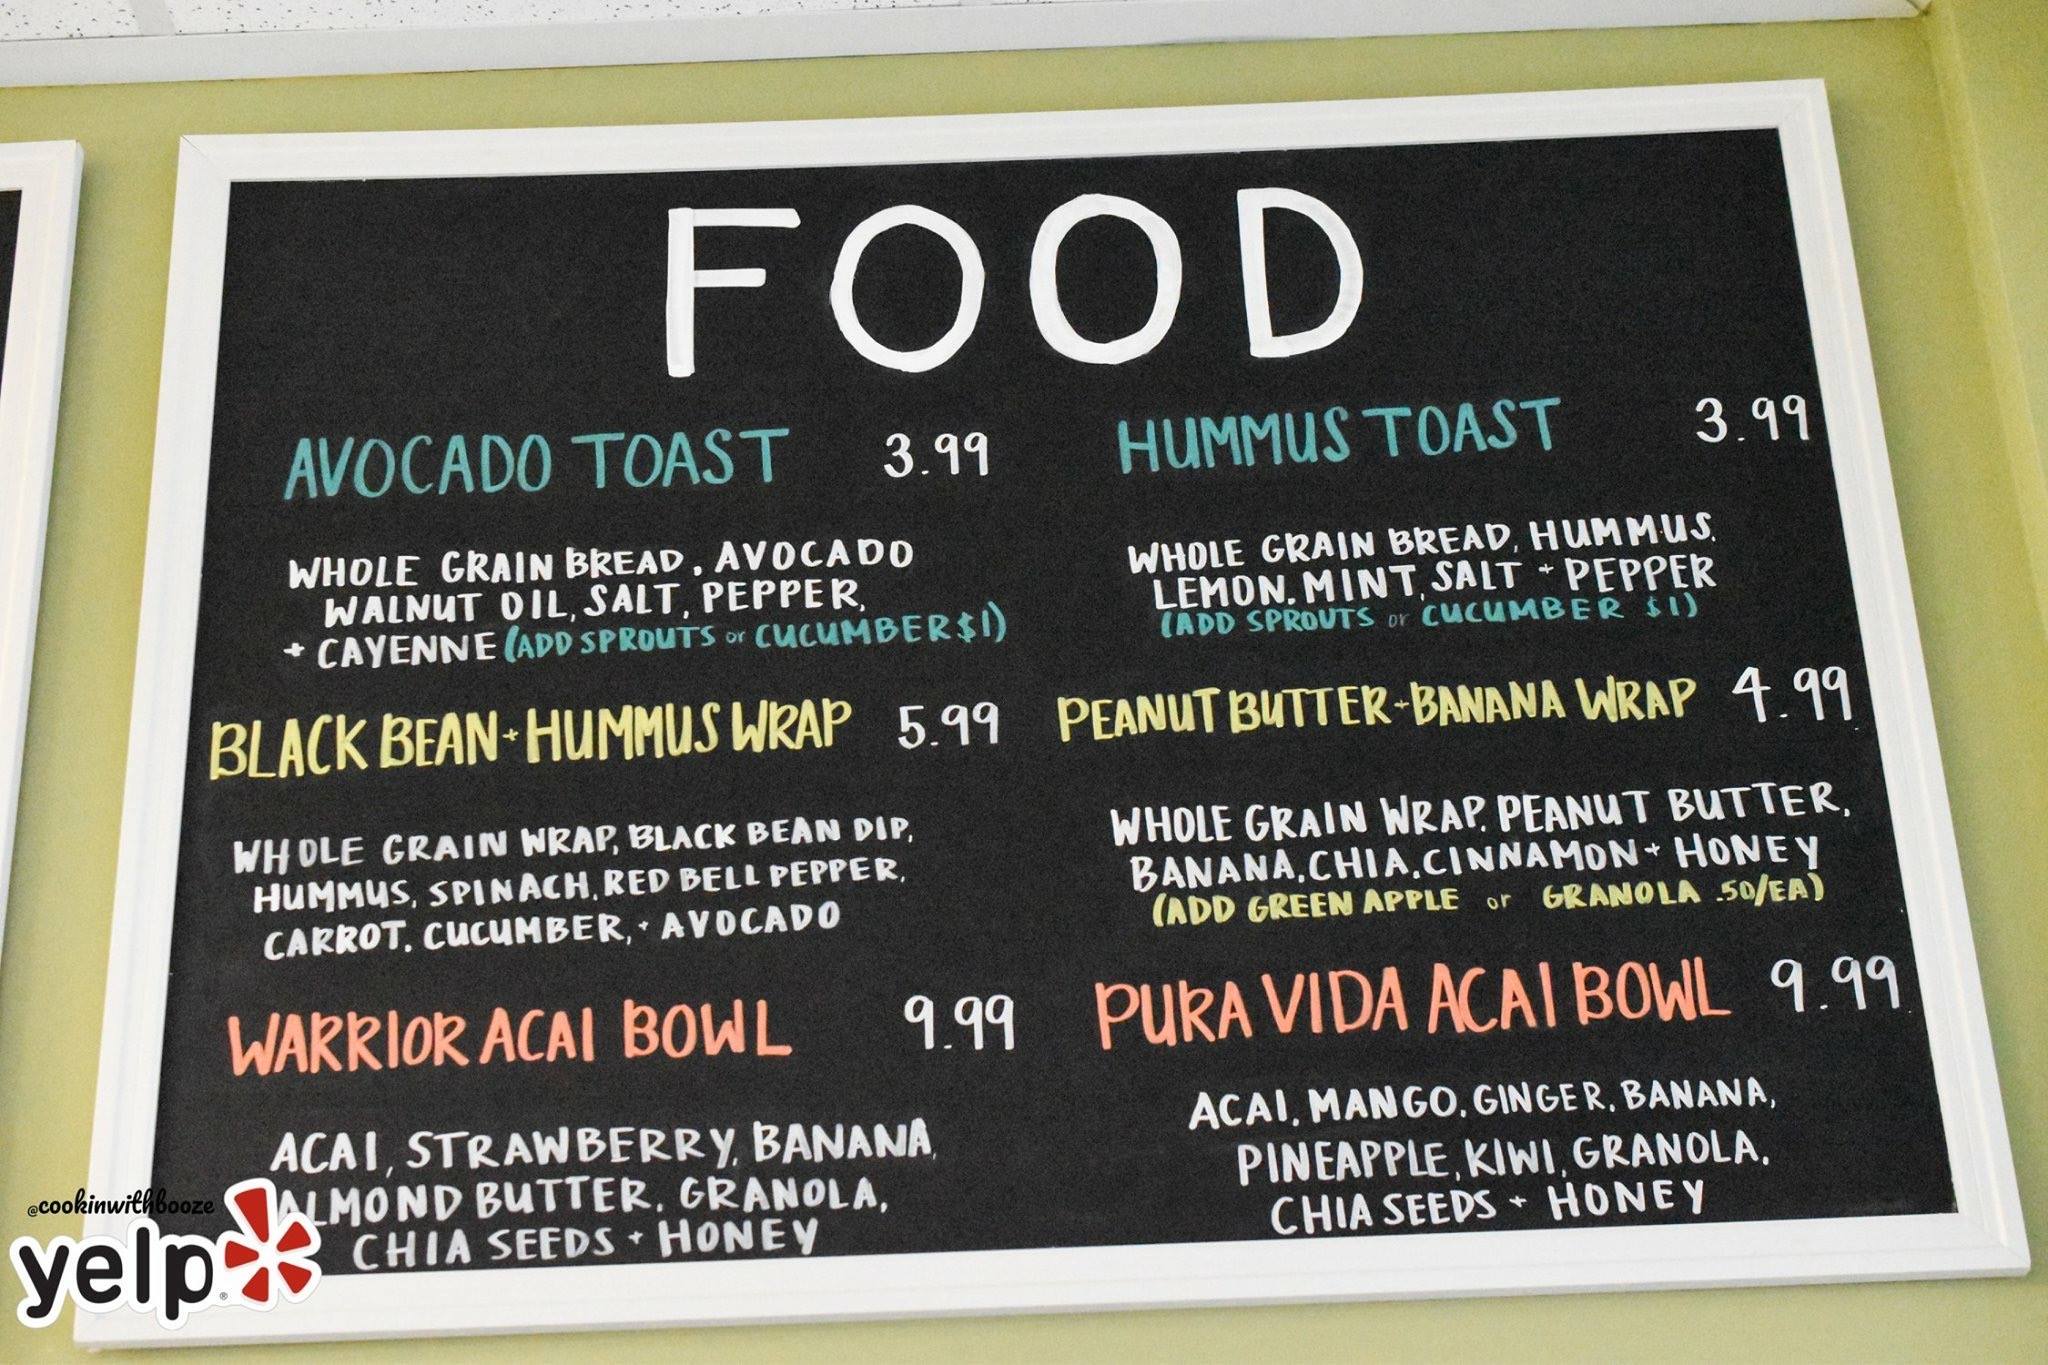 FOOD
AVOCADO TOAST 3.99
WHOLE GRAIN BREAD, AVOCADO
WALNUT OIL, SALT, PEPPER,
+ CAYENNE (ADD SPROUTS or CUCUMBER $1)
BLACK BEAN + HUMMUS WRAP 5.99
WHOLE GRAIN WRAP, BLACK BEAN DIP,
HUMMUS, SPINACH, RED BELL PEPPER,
CARROT, CUCUMBER, + AVOCADO
WARRIOR ACAI BOWL 9.99
ACAI, STRAWBERRY, BANANA,
ALMOND BUTTER, GRANOLA,
CHIA SEEDS + HONEY
HUMMUS TOAST 3.99
WHOLE GRAIN BREAD, HUMMUS,
LEMON, MINT, SALT + PEPPER
(ADD SPROUTS or CUCUMBER $1)
PEANUT BUTTER + BANANA WRAP 4.99
WHOLE GRAIN WRAP, PEANUT BUTTER,
BANANA, CHIA, CINNAMON + HONEY
(ADD GREEN APPLE or GRANOLA .50/EA)
PURA VIDA ACAI BOWL 9.99
ACAI, MANGO, GINGER, BANANA,
PINEAPPLE, KIWI, GRANOLA,
CHIA SEEDS + HONEY
@cookinwithbooze
yelp®